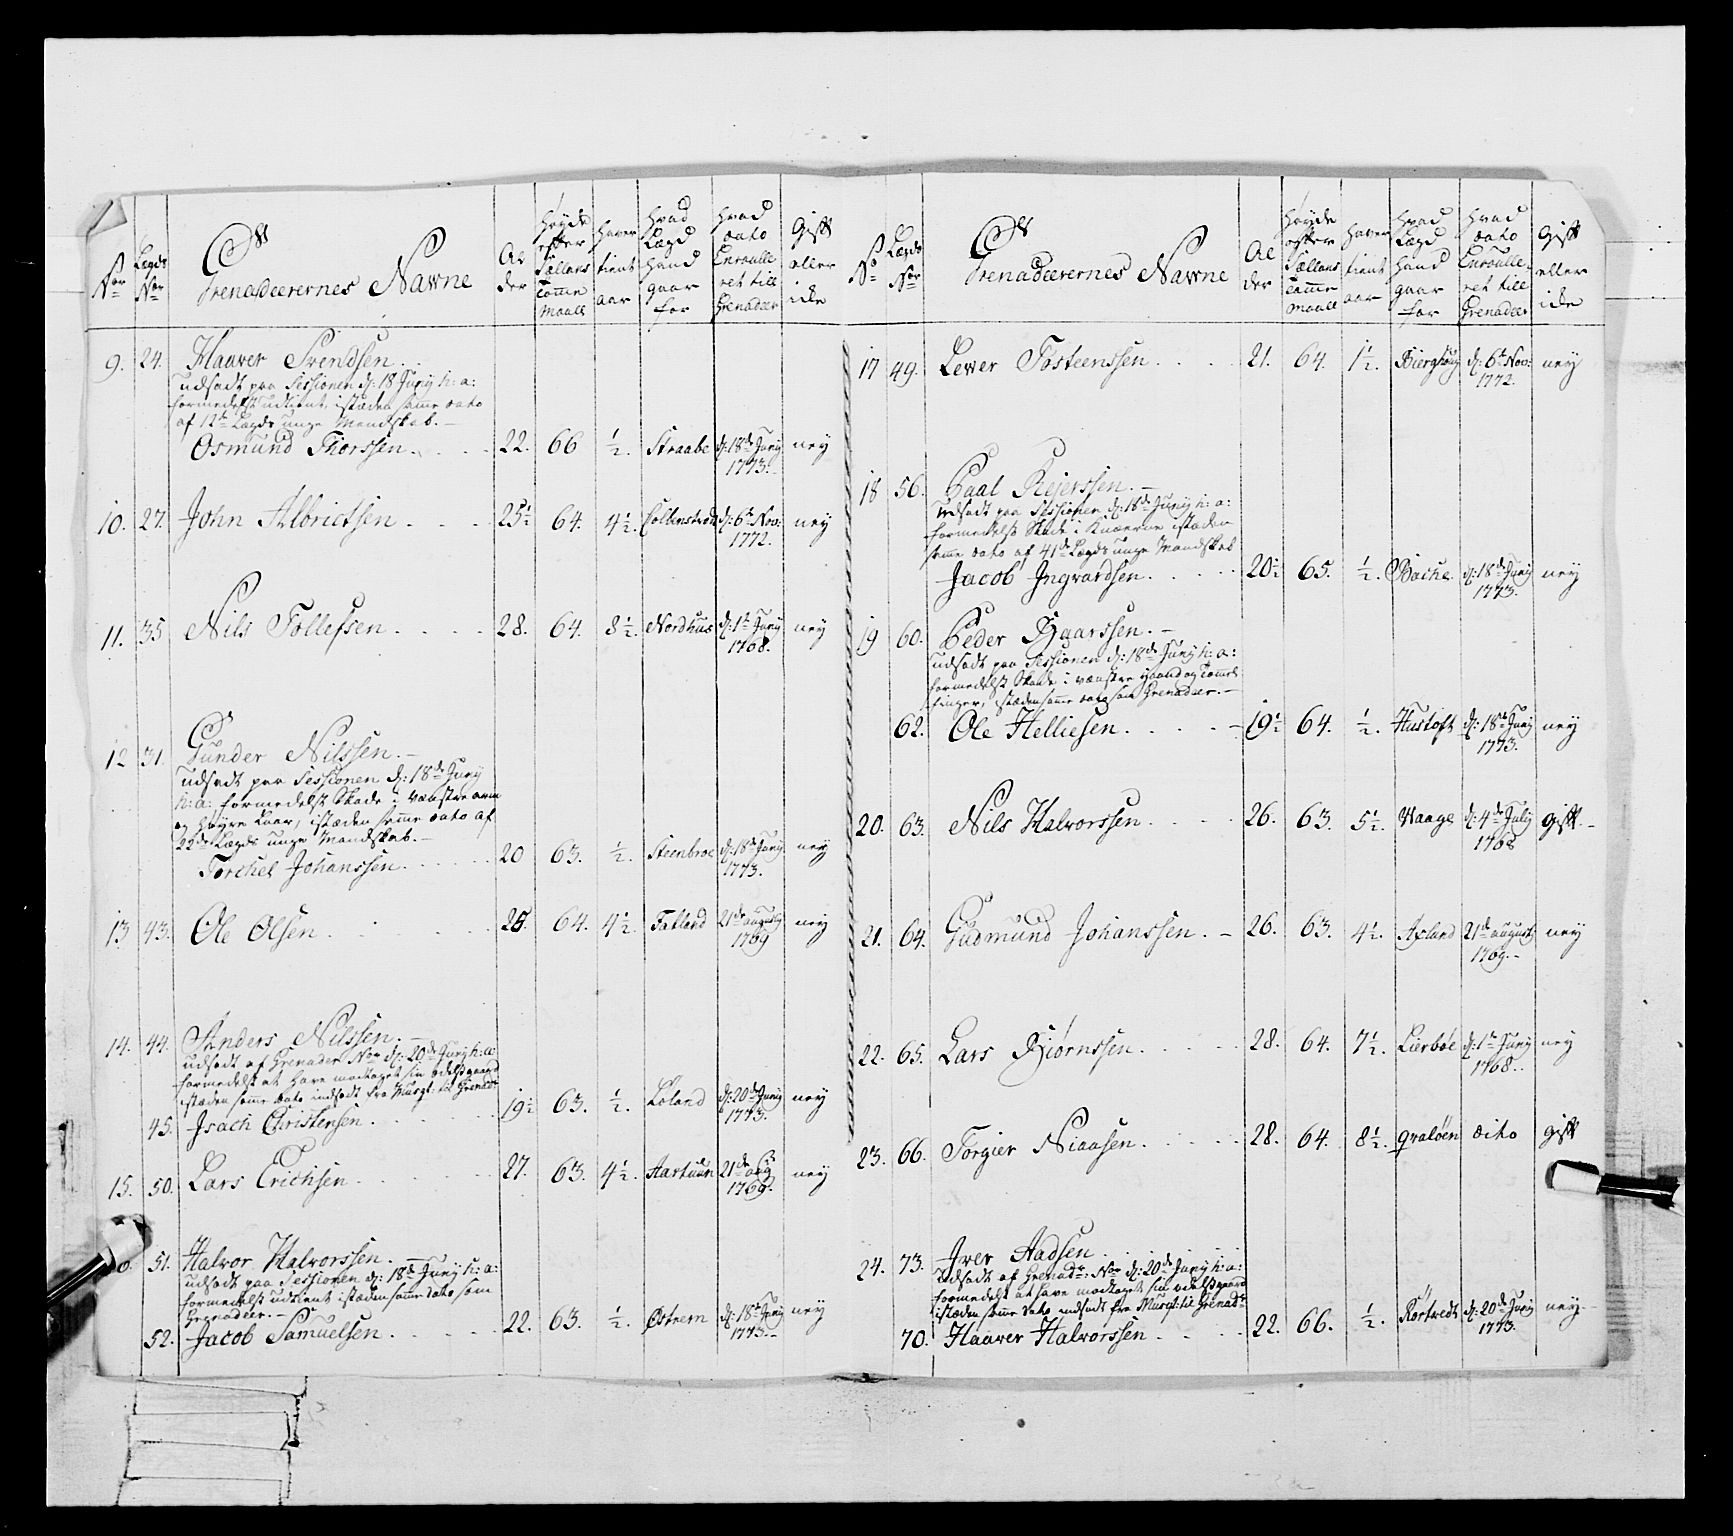 No Lægds No Grenadeerernes Nawne Alder Høyde efter Sællans Tomme Maall haver tient aar hvad Lægd hand gaar for hvad dato Enroulleret till Grenadeer Gift eller icke
9. 24. Haaver Svendsen
udsadt paa Sessionen d: 18 Junij h: a:
formedelst udtient, istæden samme dato
af 12te Lægds unge Mandskab.
Osmund Thorssen. 22. 66 ½. Straabe d: 18de Junij 1773. ney
10. 27. John Albrictsen 25½ 64. 4½. d: 6te Nov: 1772. ney
11. 35 Nils Tollefsen 28. 64. 8½. Nordhus d: 1te Junij 1768. ney
12 31. Gunder Nilssen.
udsadt paa Sessionen d: 18de Junij
h: a: formedelst Skade i venstre arm
og høyre Laar, istæden samme dato af
22de Lægds unge Mandskab.
Torchel Johanssen 20 63. ½. Steenbroe d: 18de Junij 1773. ney
13 43. Ole Olsen 26. 64. 4½. Fatland 21de augustij 1769 ney
14. 44. Anders Nilssen.
udsadt af Grenader No d: 20de Junij h: a:
formedelst at have modtaget sin odelsgaard
istæden samme dato indsadt fra Musqt: til Grenadr
45. Isach Christensen 19½ 63. ½. Loland d: 20de Junij 1773. ney
15. 50. Lars Erichsen 27. 63. 4½. Aartuun 21de aug 1769. ney
51. Halvor Halvorssen.
udsadt paa Sessionen d: 18de Junij h: a:
formedelst udtient istæden samme dato som
Grenadier.
52. Jacob Samuelsen 22. 63. ½. Østrem d: 18de Junij 1773. ney
No Lægds No Grenadeerernes Nawne Alder Høyde efter Sællans Tomme Maall haver tient aar hvad Lægd hand gaar for hvad dato Enroulleret till Grenadeer Gift eller icke
17 49. Lewer Tosteenssen 21. 64. 1½. Bierghoug d: 6te Nov: 1772. ney
18 56. Paal Rejerssen.
udsadt paa Sessionen d: 18de Junij h: a:
formedelst Skade i Knæerne istæden
samme dato af 41de Lægds unge Mandskab
Jacob Ingvardsen 20½ 65. ½. Bache d: 18de Junij 1773. ney
19 60. Peder Haarssen.
udsadt paa Sessionen d: 18de Junij h: a:
formedelst Skade i venstre haand og Tommel
finger, istæden samme dato som Grenadeer.
62. Ole Helliesen 19½ 64. ½. Hustoft d: 18de Junij 1773. ney
20. 63. Nils Halvorssen 26. 63. 5½. Waage d: 4de Julij 1768 gift.
21. 64. Gudmund Johanssen 26. 63. 4½. Axland 21de augustij 1769. ney
22. 65. Lars Biørnssen 28. 64. 7½. Lierbøe d: 1te Junij 1768. ney
23. 66. Torgier Niaasen 28. 64. 8½. qvaløen dito gift
24. 73. Iver Aadsen
udsadt af Grenadr: No d: 20de Junij h: a:
formedelst at have modtaget sin odelsgaard
istæden samme dato indsadt fra Musqt: til Grenadr
70. Haaver Halvorssen 22. 66. ½. Rørtvedt d: 20de Junij 1773. ney.